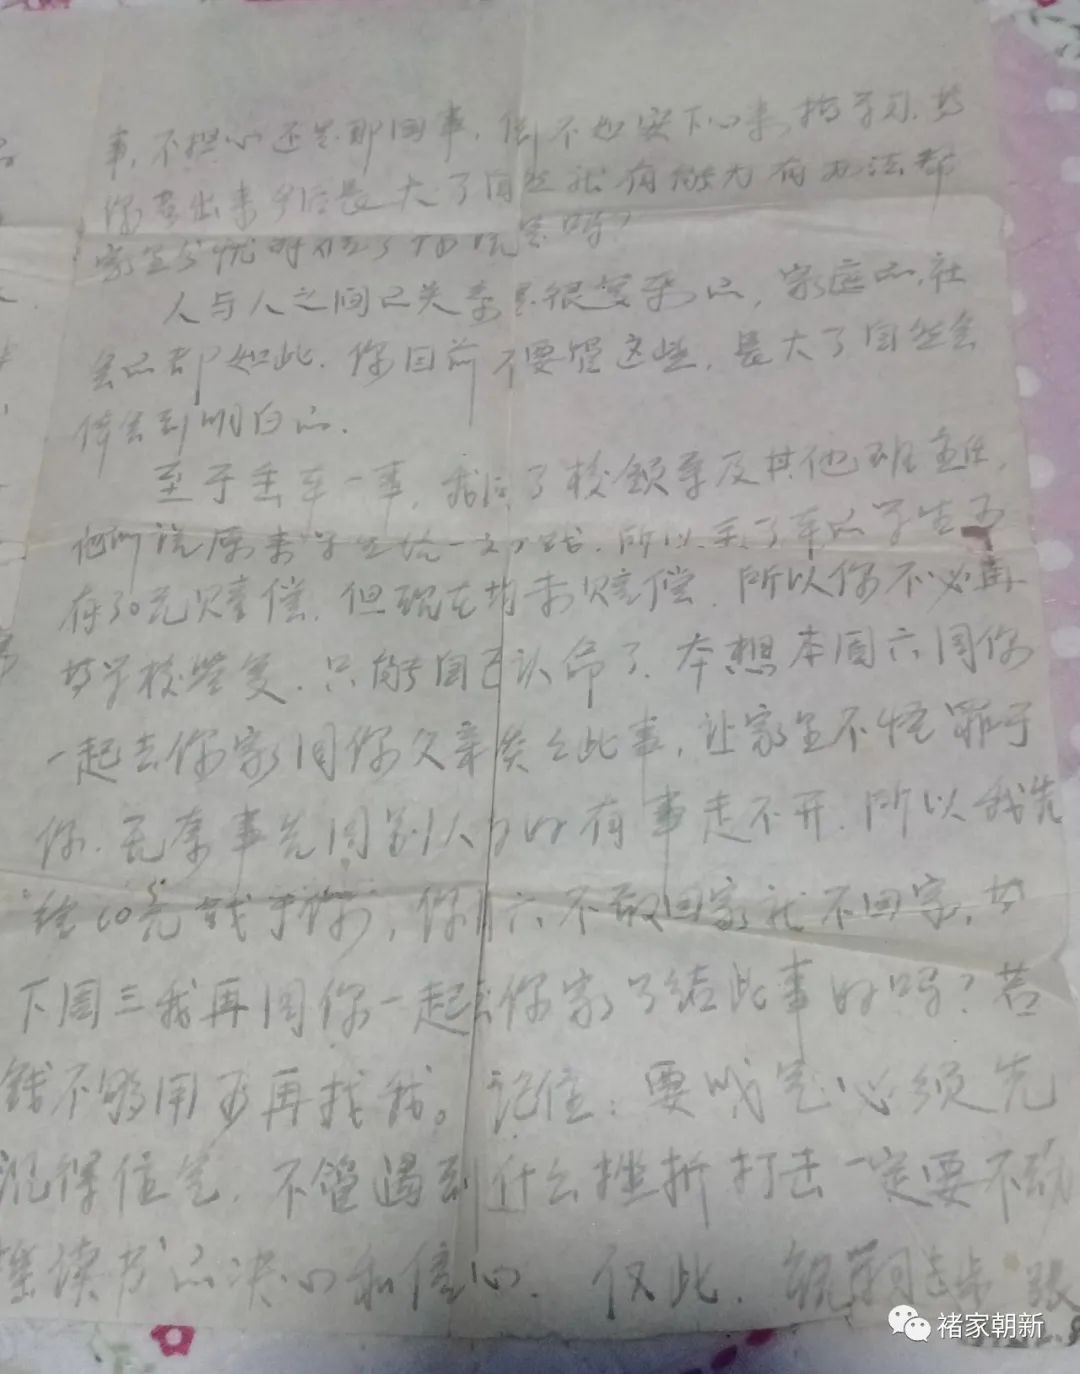 事,不担心还是那回事,倒不如安下心来,搞学习,等
你考出来多后长大了自然就有能力有办法帮
家里分忧
人与人之间的关系是很复杂的,家庭的,社
会的都如此.你目前不要管这些,长大了自然会
体会到明白的.
至于丢车一事,我问了校领导及其他班主任,
他们说原来学生统一交了钱,所以丢了车的学生可
有30元赔偿.但现在均未赔偿,所以你不必再
等学校答复,只能自己认命了.本想本周六同你
一起去你家同你父亲谈谈此事,让家里不怪罪于
你.无奈事先同别人约好有事走不开.所以我先
给10元钱于你,你周六不敢回家就不回家,等
下周三我再同你一起去你家了结此事好吗?若
钱不够用可再找我。记住:要成气必须先
沉得住气.不管遇到什么挫折打击一定要不动
摇读书的决心和信心. 仅此. 祝学习进步 张
褚家朝新